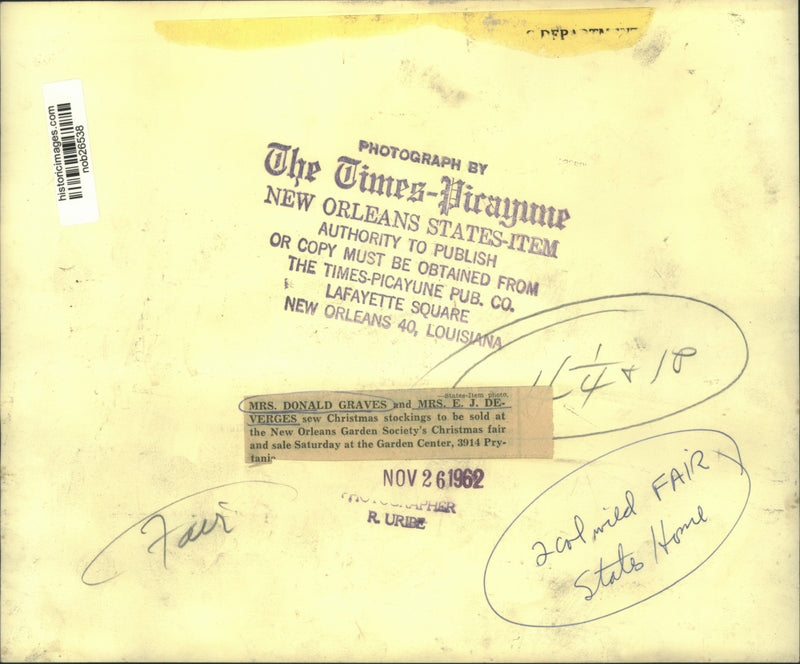 DEPARTMENT
historicimages.com
nob26538
PHOTOGRAPH BY
The Times-Picayune
NEW ORLEANS STATES-ITEM
AUTHORITY TO PUBLISH
OR COPY MUST BE OBTAINED FROM
THE TIMES-PICAYUNE PUB. CO.
LAFAYETTE SQUARE
NEW ORLEANS 40, LOUISIANA
1/4 & 18
—States-Item photo.
MRS. DONALD GRAVES and MRS. E. J. DE-
VERGES sew Christmas stockings to be sold at
the New Orleans Garden Society's Christmas fair
and sale Saturday at the Garden Center, 3914 Pry-
tania
NOV 26 1962
PHOTOGRAPHER
R. URIBE
Fair
2 col wild FAIR
States Home